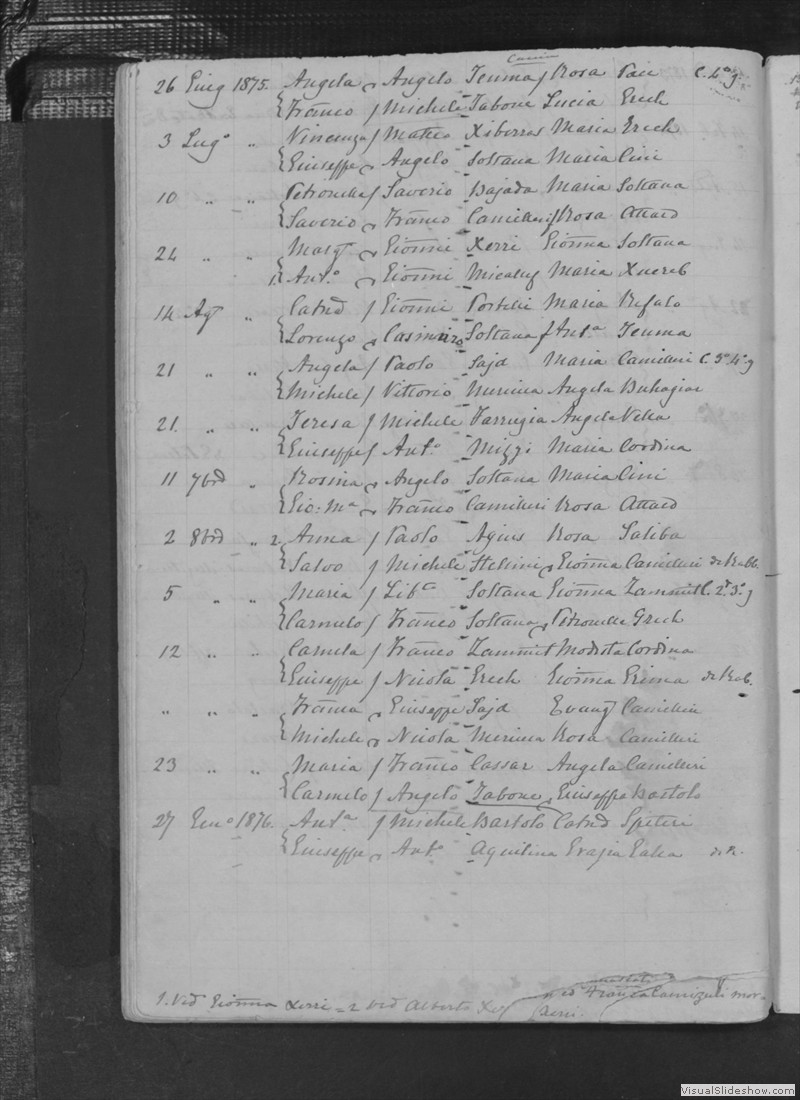 26 Giug 1875. Angela Angelo Teuma Rosa C. 4º g
Franco / Michele Tabone Lucia Grech
3 Lugº " Vincenza / Matteo Xiberras Maria Grech
Giuseppe Angelo Soltana Maria Cini
10 " " Petronilla / Saverio Bajada Maria Soltana
Saverio Franco Camilleri / Rosa Attard
24 " " Margª Gionni Xerri Gionna Soltana
1. Antº Gionni Micallef Maria Xuereb
14 Agº " Catnd / Gionni Portelli Maria Refalo
Lorenzo Casimiro Soltana / Antª Teuma
21 " " Angela / Paolo Sajd Maria Camilleri C. 3º 4º g
Michele / Vittorio Mercieca Angela Buhagiar
21. " " Teresa / Michele Farrugia Angela Vella
Giuseppe / Antº Mizzi Maria Cordina
11 7brd " Rosina Angelo Soltana Maria Cini
Gio: Mª Franco Camilleri Rosa Attard
2 8brd " 2. Anna / Paolo Agius Rosa Saliba
Salvo / Michele Stellini Gionna Camilleri de Rabb.
5 " " Maria / Libº Soltana Gionna Zammit C. 2º 3º g
Carmelo / Franco Soltana Petronilla Grech
12 " " Carmela / Franco Zammit Modesta Cordina
Giuseppe / Nicola Grech Gionna Grima de Rab.
" " " Franca Giuseppe Sajd Evang Camilleri
Michele Nicola Mercieca Rosa Camilleri
23 " " Maria / Franco Cassar Angela Camilleri
Carmelo / Angelo Tabone Giuseppa Bartolo
27 Gennº 1876. Antª / Michele Bartolo Catnd Spiteri
Giuseppe Antº Aquilina Grazia Galea de R.
1. Ved Gionna Xerri = 2 Ved Alberto
VisualSlideshow.com